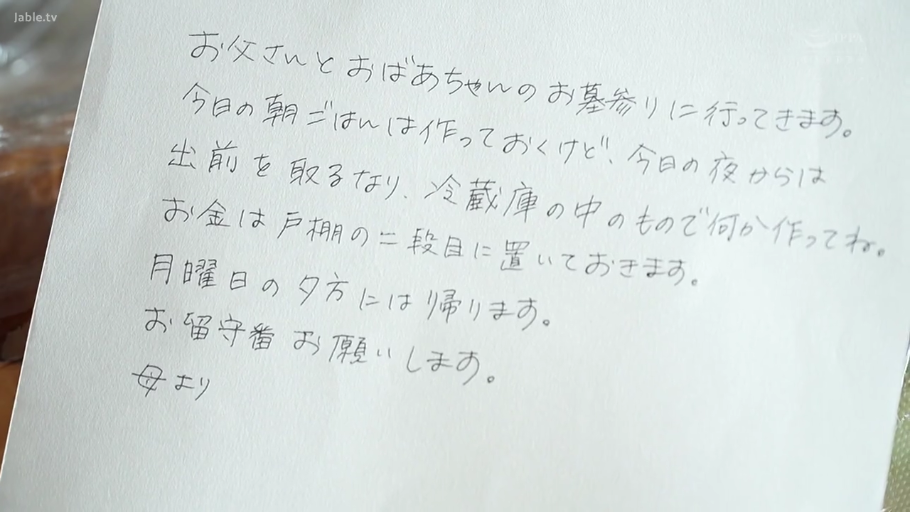 Jable.tv
お父さんとおばあちゃんのお墓参りに行ってきます。
今日の朝ごはんは作っておくけど、今日の夜からは
出前を取るなり、冷蔵庫の中のもので何か作ってね。
お金は戸棚の二段目に置いておきます。
月曜日の夕方には帰ります。
お留守番お願いします。
母より